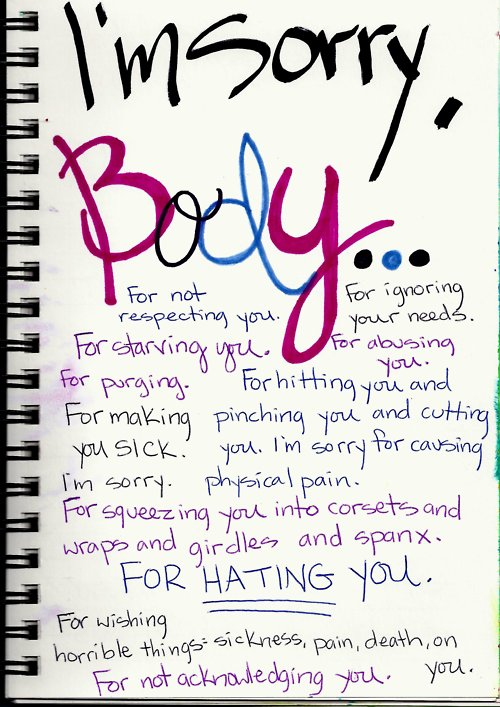 I'm sorry.
Body...
For not
respecting you.
For ignoring
your needs.
For starving you.
For abusing
you.
For purging.
For hitting you and
pinching you and cutting
you. I'm sorry for causing
physical pain.
For making
you SICK.
I'm sorry.
For squeezing you into corsets and
wraps and girdles and spanx.
FOR HATING YOU.
For wishing
horrible things: sickness, pain, death, on
you.
For not acknowledging you.